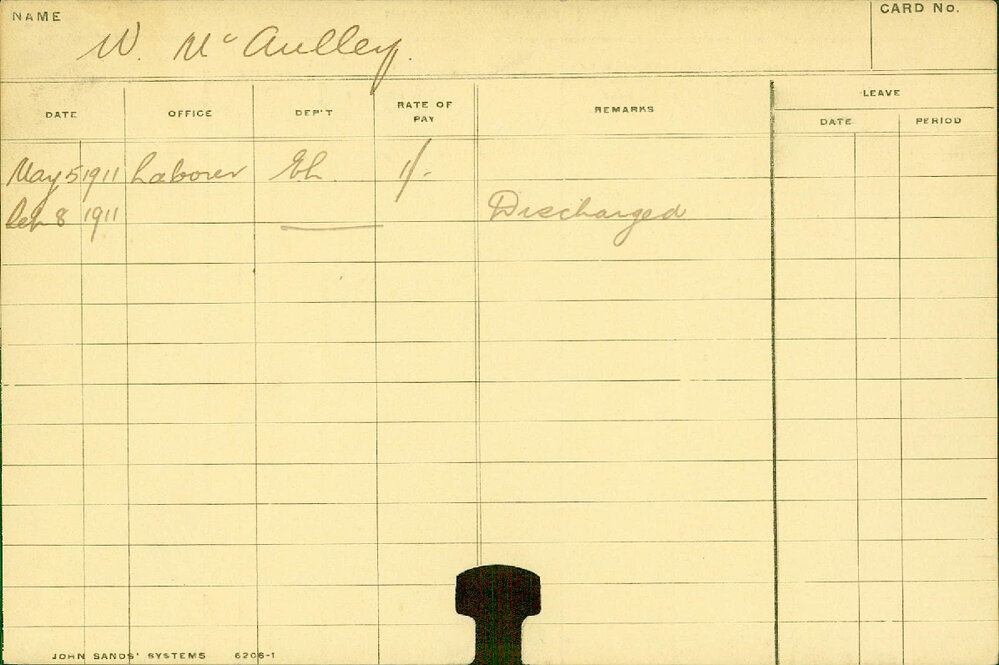 NAME
CARD No.
W. McAulley.
DATE OFFICE DEP'T RATE OF PAY REMARKS LEAVE
DATE PERIOD
May 5 1911 Laborer Eh. 1/-
8 1911 Discharged
JOHN SANDS' SYSTEMS 6206-1